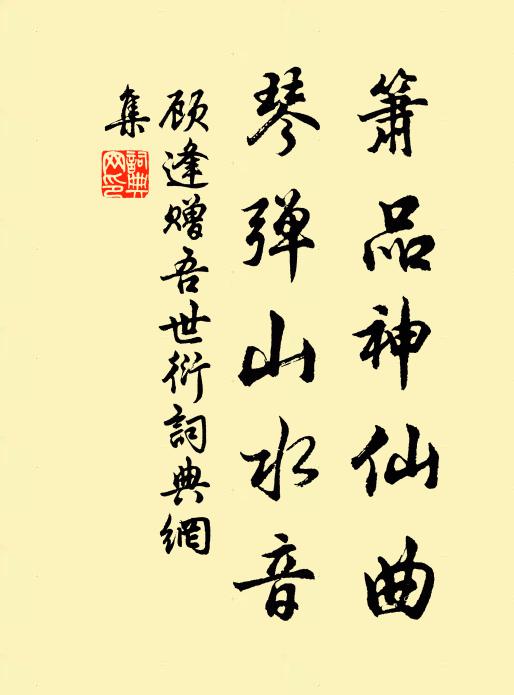 箫品神仙曲
琴弹山水音
顾逢赠吾世衍詞典網
集
詞典
网印